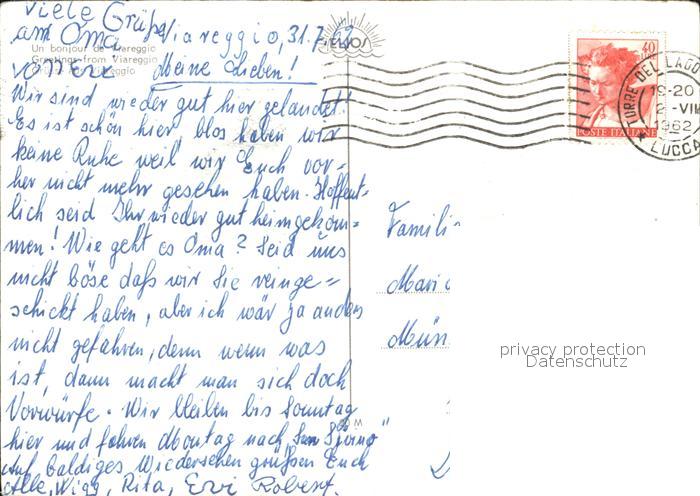 Viele Grüße
am Oma
Viareggio, 31.7.62
Un bonjour de Viareggio
Greetings from Viareggio
Viareggio
von Evi
Meine Lieben!
Wir sind wieder gut hier gelandet!
Es ist schön hier, blos haben wir
keine Ruhe weil wir Euch vor=
her nicht mehr gesehen haben. Hoffent-
lich seid Ihr wieder gut heimgekom=
men! Wie geht es Oma? Seid uns
nicht böse daß wir Sie reinge=
schickt haben, aber ich wär ja anders
nicht gefahren, denn wenn was
ist, dann macht man sich doch
Vorwürfe. Wir bleiben bis Sonntag
hier und fahren Montag nach "San
Auf baldiges Wiedersehen grüßen Euch
Alle, Wigg, Rita, Evi Robert.
40
POSTE ITALIANE
TORRE DEL LAGO
19-20
2 -VII
1962
LUCCA
Famili
Mari
Mün
privacy protection
Datenschutz